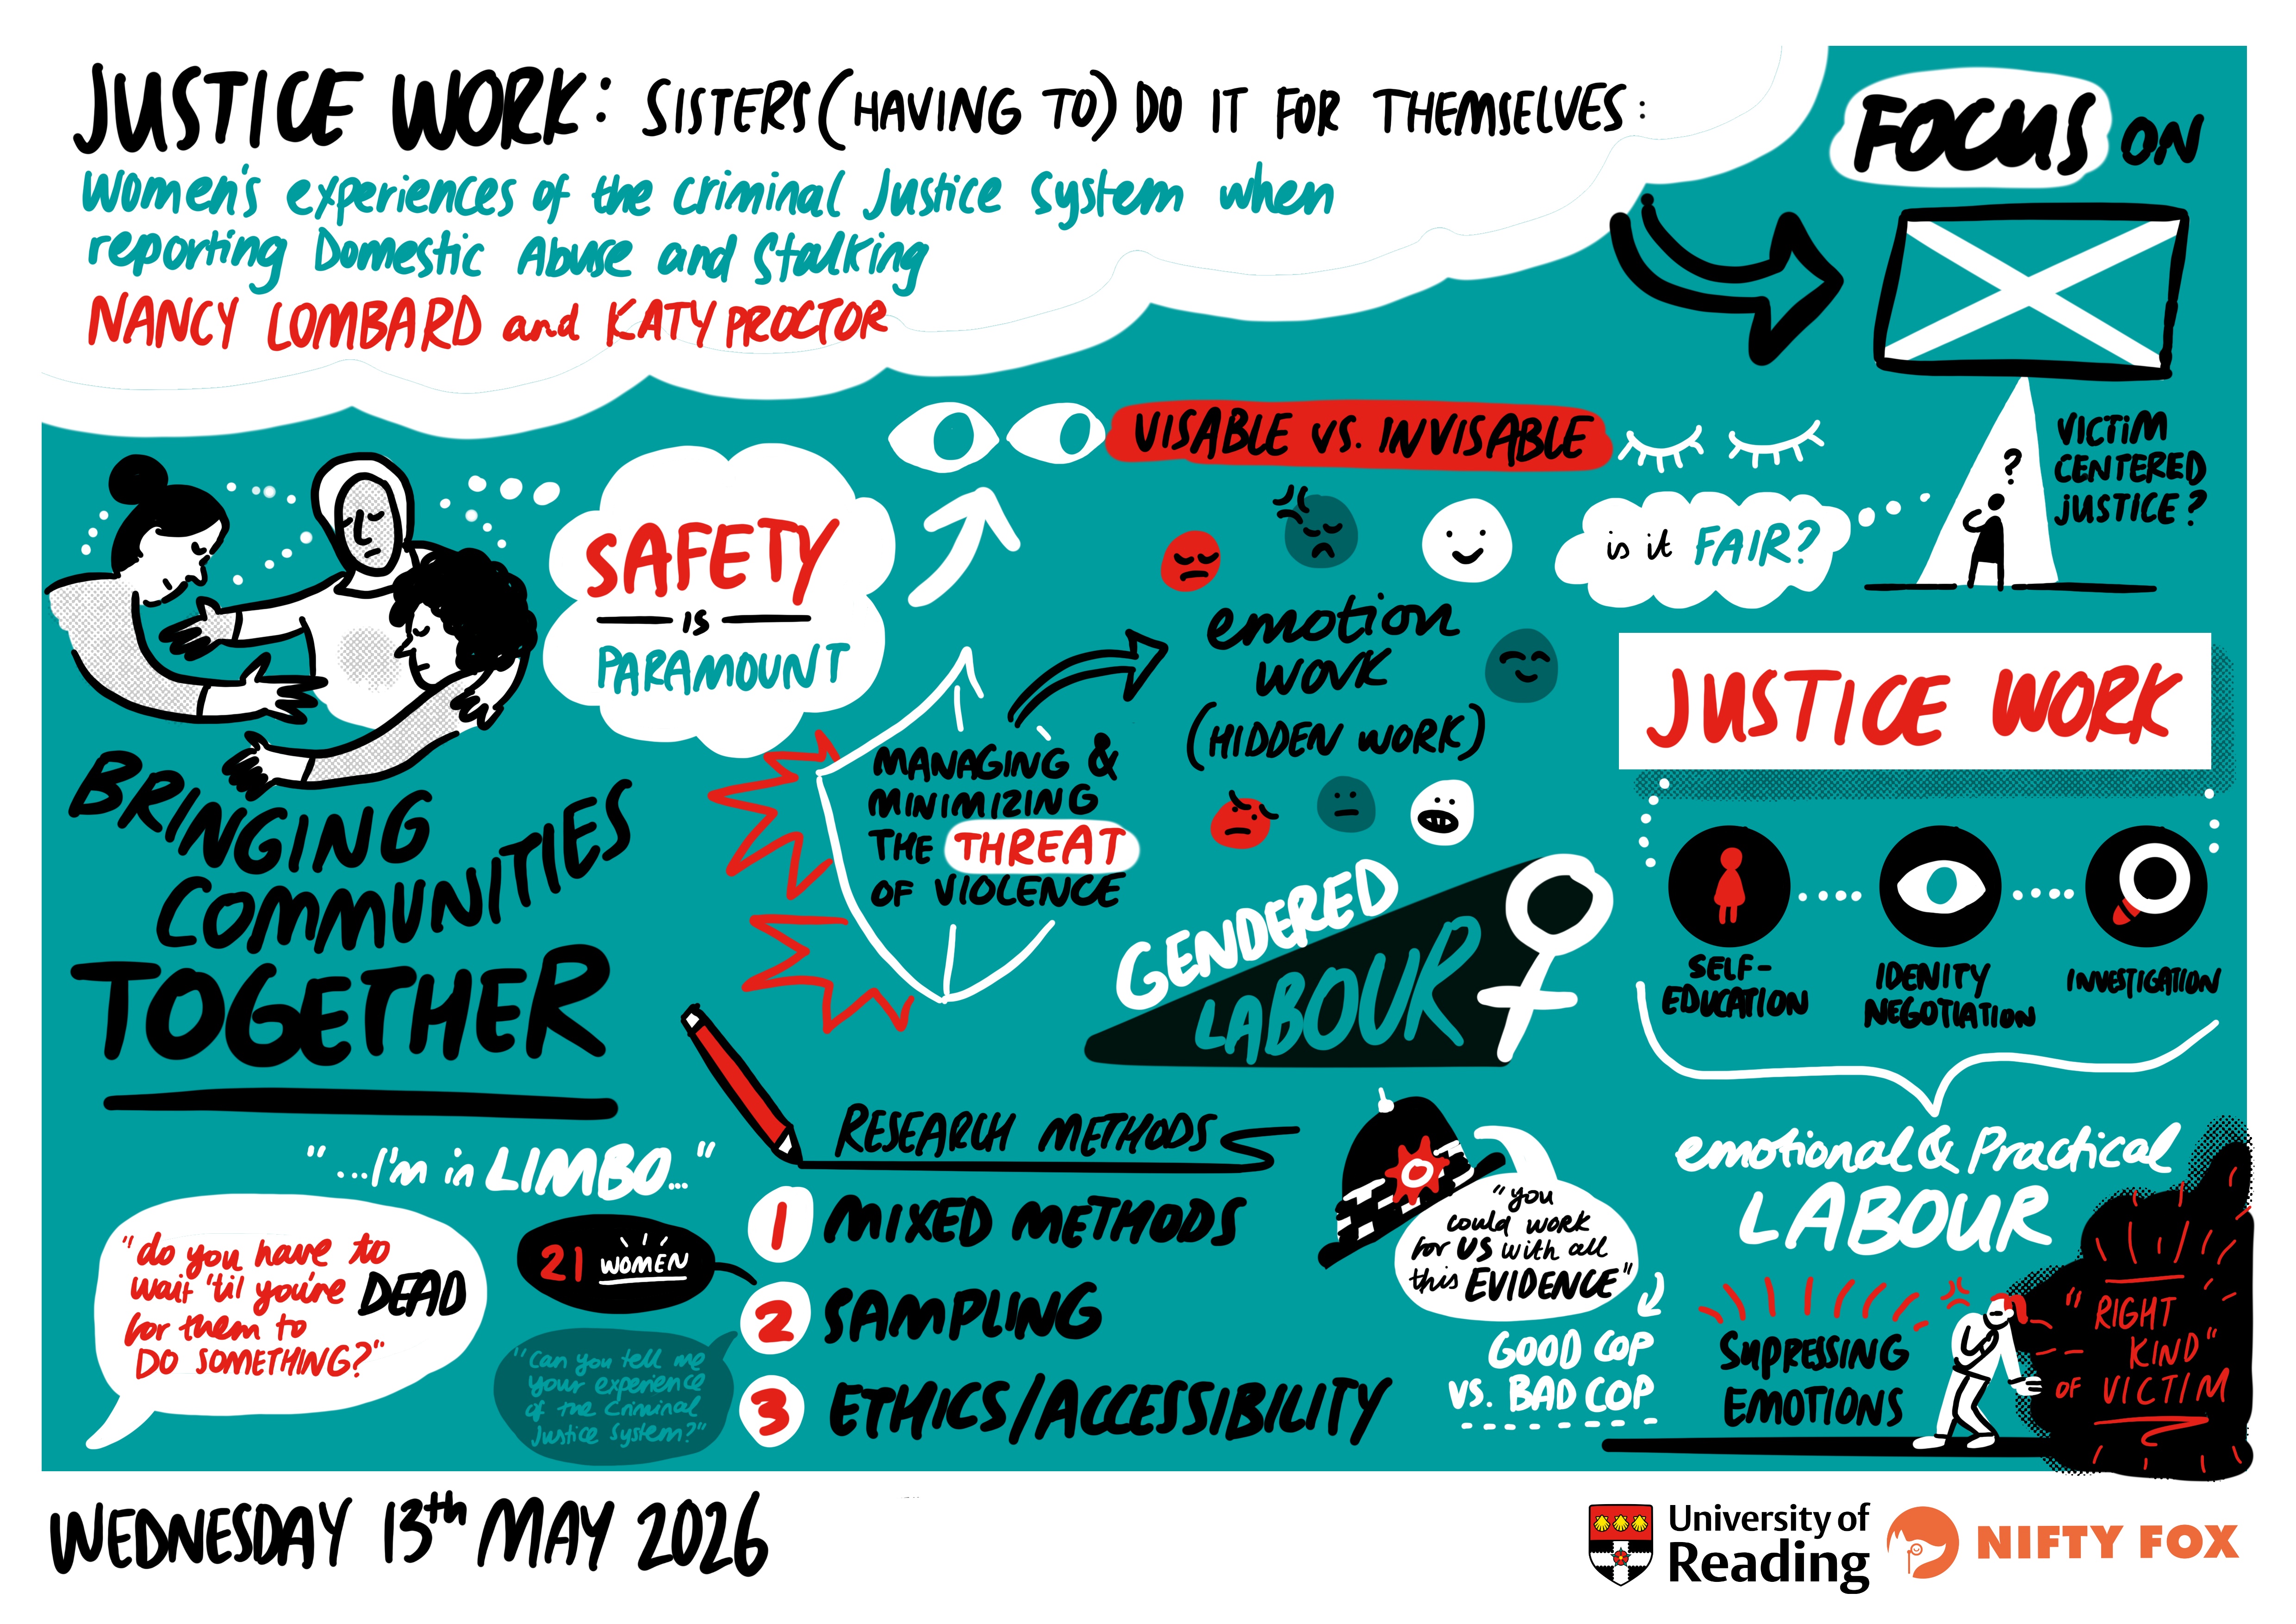 JUSTICE WORK: SISTERS (HAVING TO) DO IT FOR THEMSELVES:
Women's experiences of the criminal Justice system when
reporting Domestic Abuse and Stalking
NANCY LOMBARD and KATY PROCTOR
FOCUS ON
VISABLE VS. INVISABLE
VICTIM
CENTERED
JUSTICE?
?
is it FAIR?
SAFETY
IS
PARAMOUNT
emotion
work
(HIDDEN WORK)
MANAGING &
MINIMIZING
THE THREAT
OF VIOLENCE
JUSTICE WORK
SELF-
EDUCATION
IDENITY
NEGOTIATION
INVESTIGATION
BRINGING
COMMUNITIES
TOGETHER
GENDERED
LABOUR
emotional & Practical
LABOUR
"...I'm in LIMBO..."
"do you have to
wait 'til you're DEAD
for them to
DO SOMETHING?"
RESEARCH METHODS
1 MIXED METHODS
21 WOMEN
2 SAMPLING
"Can you tell me
your experience
of the Criminal
Justice System?"
3 ETHICS/ACCESSIBILITY
"you
could work
for US with all
this EVIDENCE"
GOOD COP
VS. BAD COP
SUPRESSING
EMOTIONS
"RIGHT
KIND"
OF VICTIM
WEDNESDAY 13th MAY 2026
University of
Reading
NIFTY FOX